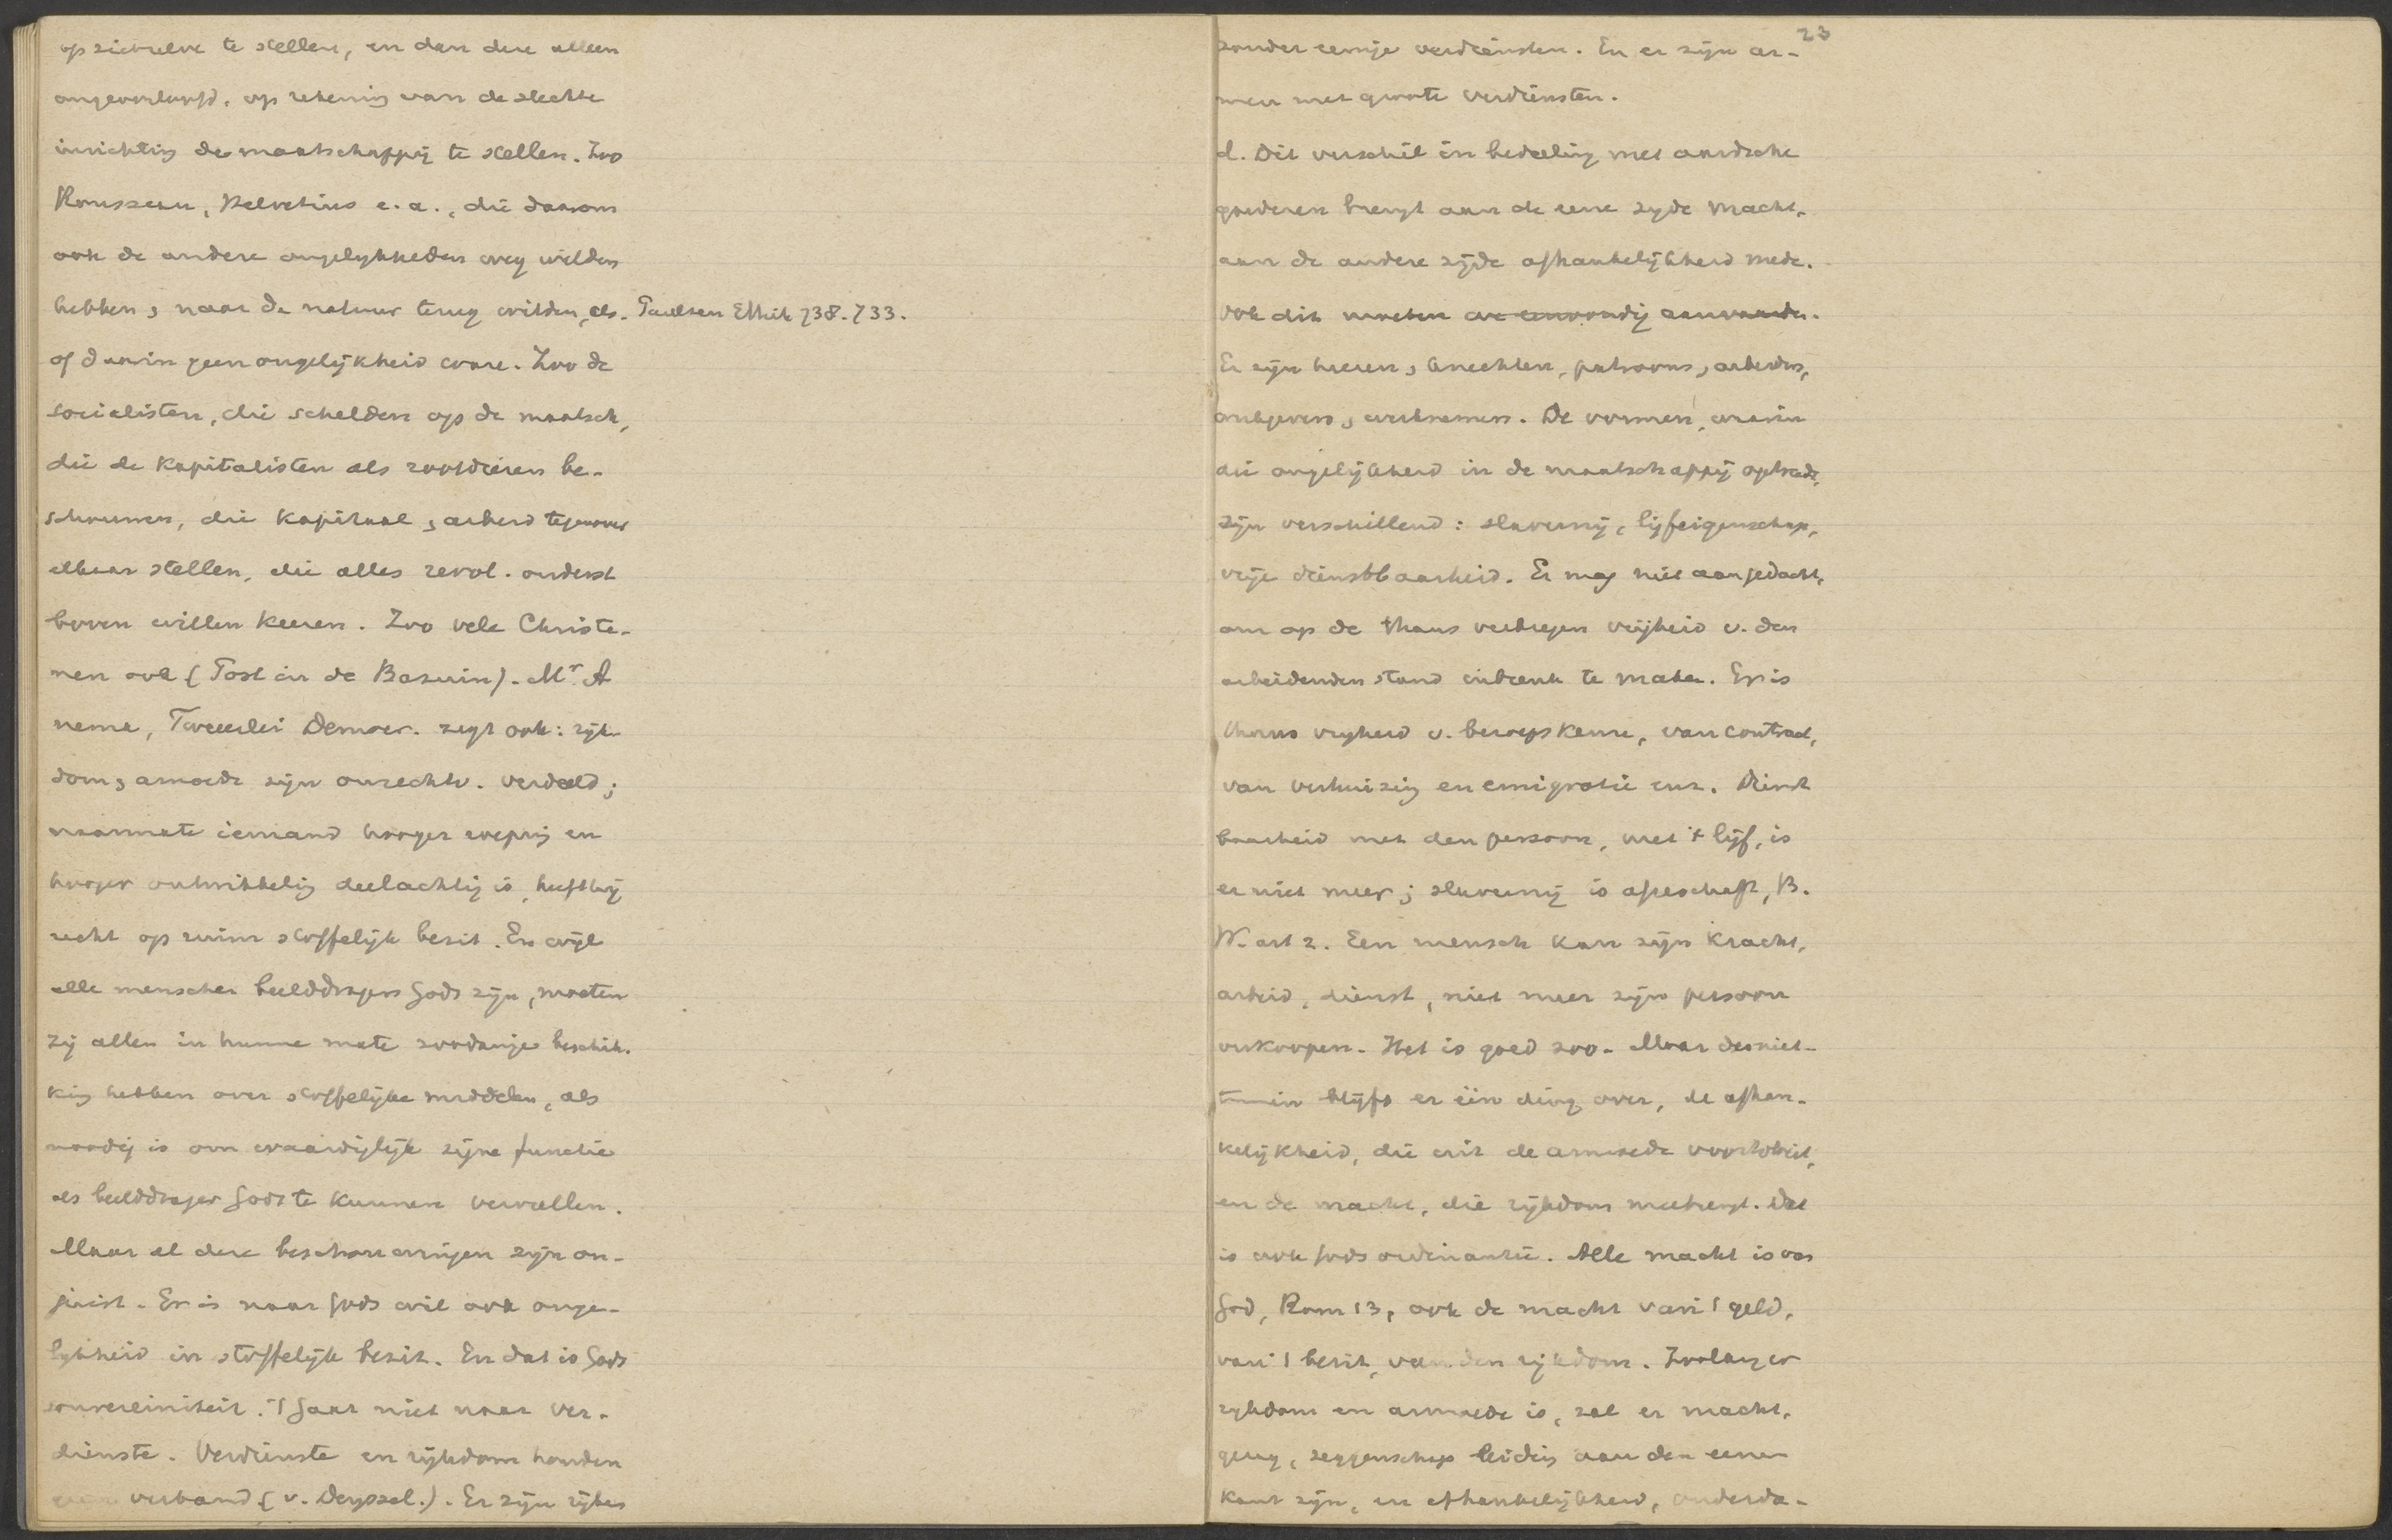 op zichzelve te stellen, en dan deze alleen
ongeoorloofd, op rekening van de slechte
inrichting der maatschappij te stellen. Zoo
Rousseau, Helvetius e. a., die daarom
ook de andere ongelykheden weg wilden
hebben, naar de natuur terug wilden, als- Paulsen Ethik 738. 733.
of daarin geen ongelijkheid ware. Zoo de
socialisten, die schelden op de maatsch,
die de kapitalisten als roofdieren be-
schouwen, die kapitaal, arbeid tegenover
elkaar stellen, die alles revol. onderst
boven willen keeren. Zoo vele Christe-
nen ook (Post in de Bazuin). Mr. A
neme, Tweeerlei Democr. zegt ook: rijk-
dom, armoede zijn onrechtv. verdeeld;
naarmate iemand hooger roeping en
hooger ontwikkeling deelachtig is, heeft hij
recht op ruim stoffelijk bezit. En wijl
alle menschen beelddragers Gods zijn, moeten
zij allen in hunne mate zoodanige beschik-
king hebben over stoffelijke middelen, als
noodig is om waardiglijk zijne functie
als beelddrager Gods te kunnen vervullen.
Maar al deze beschouwingen zijn on-
juist. Er is naar Gods wil ook onge-
lykheid in stoffelijk bezit. En dat is Gods
souvereiniteit. 't Gaat niet naar ver-
dienste. Verdienste en rijkdom houden
geen verband (v. Deyssel.). Er zijn rijken
23
zonder eenige verdiensten. En er zijn ar-
men met groote verdiensten.
d. Dit verschil in bedeeling met aardsche
goederen brengt aan de eene zyde macht,
aan de andere zijde afhankelijkheid mede.
Ook dit moeten we eenvoudig aanvaarden.
Er zijn heeren, knechten, patroons, arbeiders,
werkgevers, werknemers. De vormen, waarin
die ongelijkheid in de maatschappij optreedt,
zijn verschillend: slavernij, lijfeigenschap,
vrije dienstbaarheid. Er mag niet aan gedacht,
om op de thans verkregen vrijheid v. den
arbeidenden stand inbreuk te maken. Er is
thans vryheid v. beroepskeuze, van contract,
van verhuizing en emigratie enz. Dienst
baarheid met den persoon, met 't lijf, is
er niet meer; slavernij is afgeschaft, B.
W. art 2. Een mensch kan zijn kracht,
arbeid, dienst, niet meer zijn persoon
verkoopen. Het is goed zoo. Maar desniet-
temin blijft er één ding over, de afhan-
kelijkheid, die uit de armoede voortvloeit,
en de macht, die rijkdom meebrengt. Dat
is ook Gods ordinantie. Alle macht is van
God, Rom 13, ook de macht van 't geld,
van 't bezit, van den rijkdom. Zoolang er
rykdom en armoede is, zal er macht,
gezag, zeggenschap leiding aan den eenen
kant zijn, en afhankelijkheid, onderda-